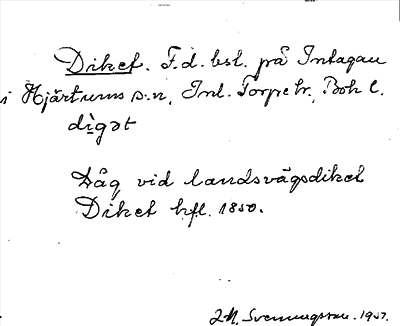 Diket. F.d. bst. på Intagan
i Hjärtums s:n, Inl. Torpe hr., Boh l.
dìgət
Låg vid landsvägsdiket
Diket hfl. 1850.
J.M. Svenningsson. 1957.